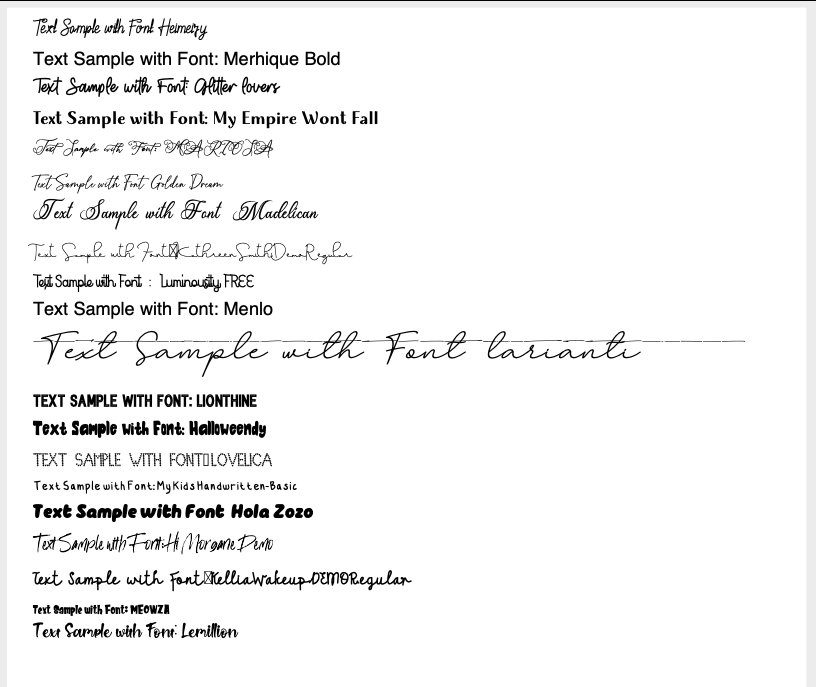 Text Sample with Font Heimeizy
Text Sample with Font: Merhique Bold
Text Sample with Font: Glitter lovers
Text Sample with Font: My Empire Wont Fall
Text Sample with Font: MARIOSA
Text Sample with Font Golden Dream
Text Sample with Font Madelican
Text Sample with Font□KathreenSmithDemoRegular
Text Sample with Font : Luminousity FREE
Text Sample with Font: Menlo
Text Sample with Font larianti
TEXT SAMPLE WITH FONT: LIONTHINE
Text Sample with Font: Halloweendy
TEXT SAMPLE WITH FONT□LOVELICA
Text Sample with Font: MyKidsHandwritten-Basic
Text Sample with Font Hola Zozo
Text Sample with Font: Hi Morgane Demo
Text Sample with Font□KelliaWakeup-DEMORegular
Text Sample with Font: MEOWZA
Text Sample with Font: Lemillion